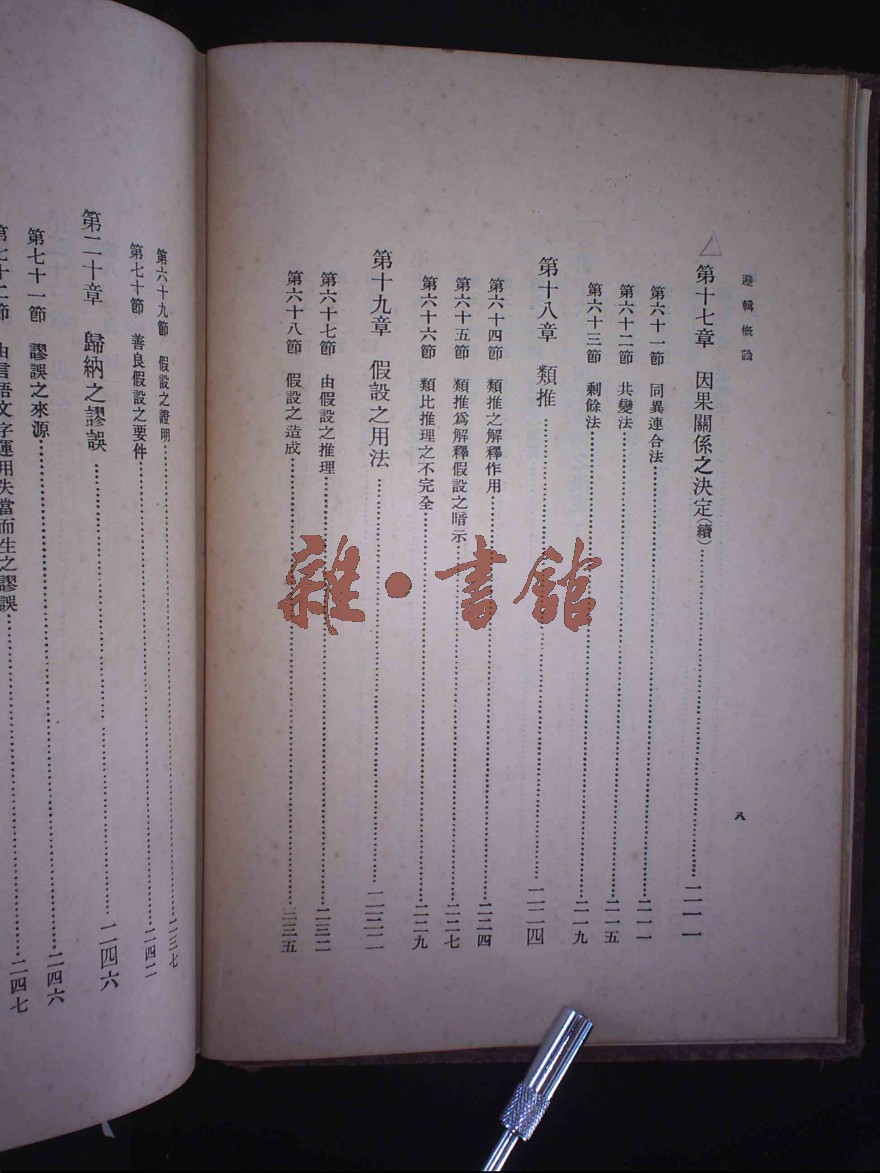 邏輯概論
八
第十七章 因果關係之決定(續)……二一一
第六十一節 同異連合法……二一一
第六十二節 共變法……二一五
第六十三節 剩餘法……二一九
第十八章 類推……二二四
第六十四節 類推之解釋作用……二二四
第六十五節 類推爲解釋假設之暗示……二二七
第六十六節 類比推理之不完全……二二九
第十九章 假設之用法……二三二
第六十七節 由假設之推理……二三二
第六十八節 假設之造成……二三五
第六十九節 假設之證明……二三七
第七十節 善良假設之要件……二四二
第二十章 歸納之謬誤……二四六
第七十一節 謬誤之來源……二四六
第七十二節 由言語文字運用失當而生之謬誤……二四七
雜·書館